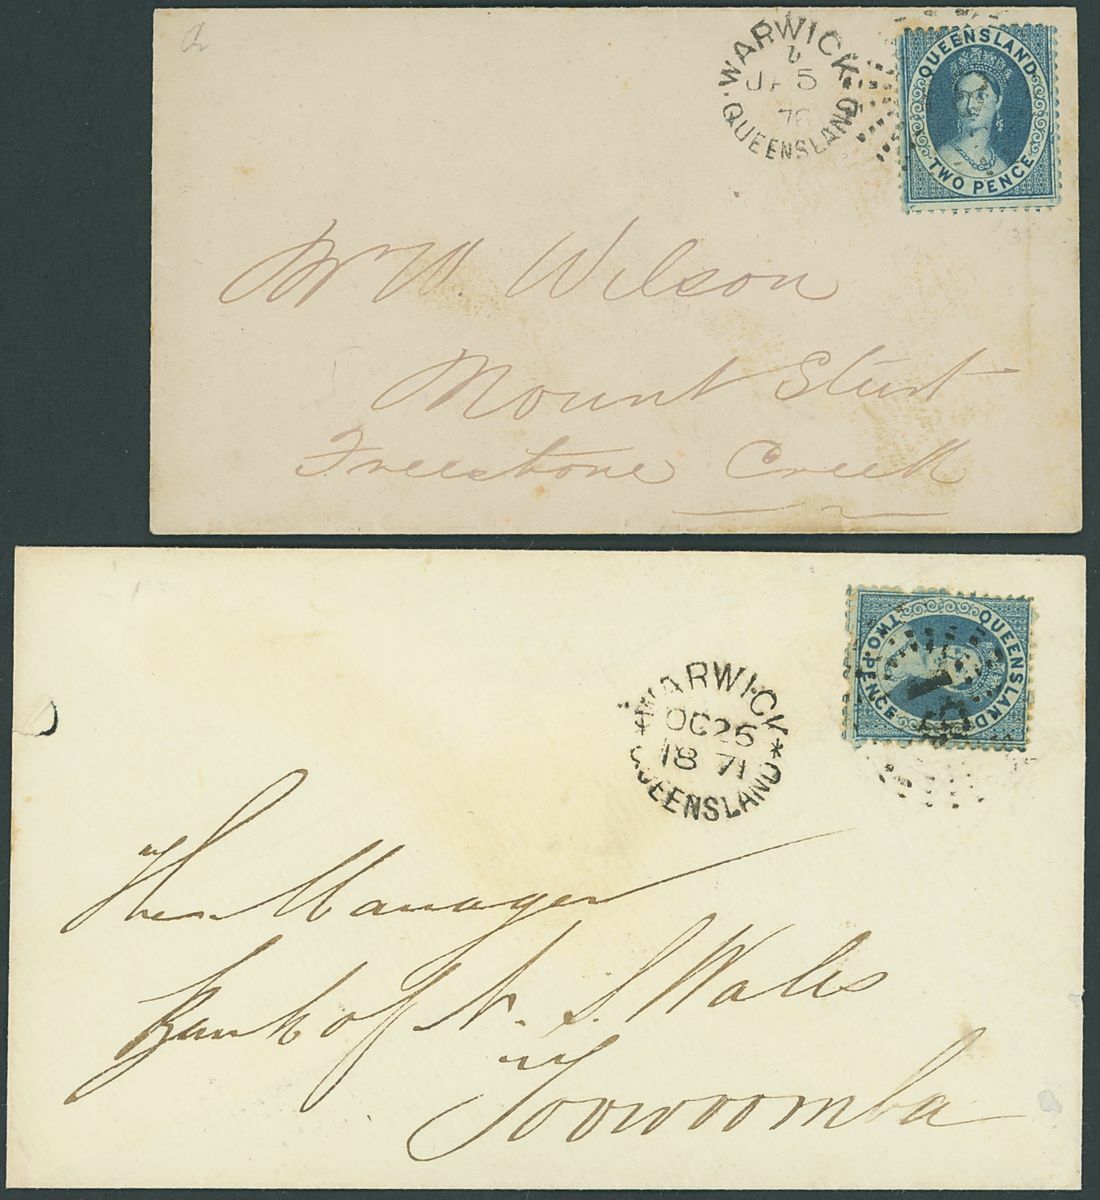 WARWICK
JA 5
QUEENSLAND
QUEENSLAND
TWO PENCE
Mr W. Wilson
Mount Sturt
Freestone Creek
WARWICK
OC 25
18 71
QUEENSLAND
QUEENSLAND
TWO PENCE
The Manager
Bank of N. S. Wales
Toowoomba